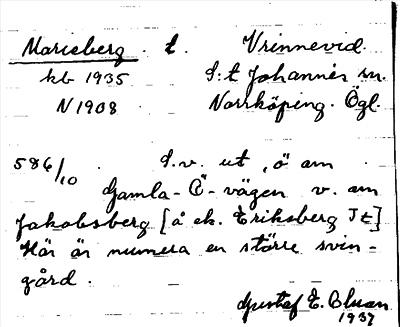 Marieberg . t. Vrinnevid.
kb 1935 S:t Johannis sn.
N 1908 Norrköping. Ögl.
586/10 S.v. ut, ö am
Gamla-Ö-vägen v. am
Jakobsberg [å ek. Eriksberg Jt]
Här är numera en större svin-
gård.
Gustaf E. Clman
1937